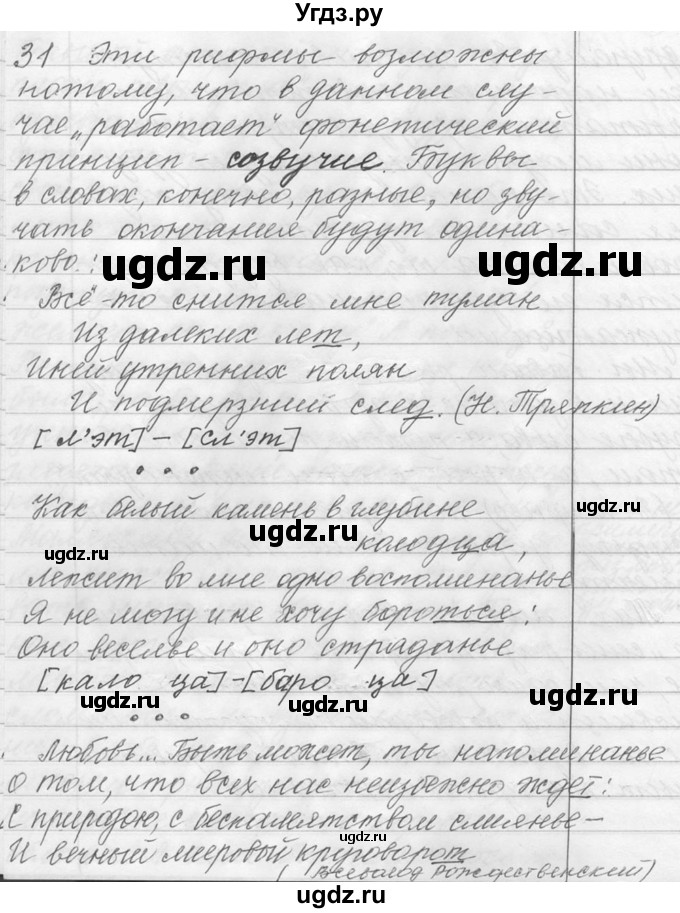 Угдз.ру
31 Эти рифмы возможны
потому, что в данном слу-
чае „работает“ фонетический
принцип – созвучие. Буквы
в словах, конечно, разные, но зву-
чать окончания будут одина-
ково.:
ugdz.ru ugdz.ru
Всё-то снится мне туман
Из далеких лет,
Иней утренних полян
И подмерзший след. (Н. Тряпкин)
[л'эт] – [сл'эт]
Как белый камень в глубине
ugdz.ru ugdz.ru ugdz.ru
колодца,
Лежит во мне одно воспоминанье
Я не могу и не хочу бороться:
Оно веселье и оно страданье
[кало ца]-[баро ца]
ugdz.ru ugdz.ru ugdz.ru
Любовь... Быть может, ты напоминанье
О том, что всех нас неизбежно ждет:
С природою, с беспамятством слиянье –
ugdz.ru
И вечный мировый круговорот
(Всеволод Рождественский)
ugdz.ru